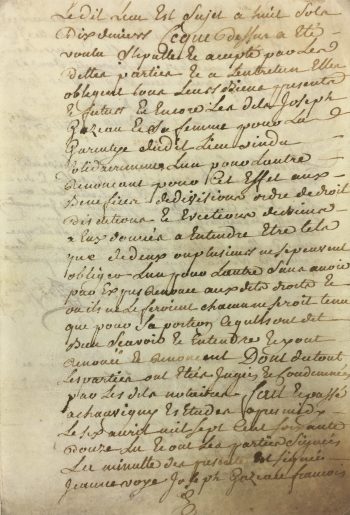 Le dit Lieu Est Sujet a huit Sols
Dix deniers Ceque dessus a Eté
voulu Stipulle & accepté par Les
dittes parties & a Lentretien Elles
obligent tous Leurs biens presents
& futurs & Encore Les dits Joseph
& Sa femme pour La
dudit Lieu vendu
Solidairement Lun pour Lautre
Renoncant pour Cet Effet aux
Benefices de divisions ordre de droit
discutions & Evictions
a Eux donnée a Entendre Etre tels
que Se deux ou plusieurs ne Sepeuvent
obliger Lun pour Lautre Sans avoir
par Expres Renoncé aux dits droits &
ou ils ne Leferoient chacun ne Seroit tenu
que pour Sa portion Cequils ont dit
Bien Scavoir & Entendre & y ont
Renoncé & Renoncent Dont de tout
Les parties ont Eté Jugées & Condemnées
par Les dits notaires fait & passé
a chauvigny Es Etudes apres midy
Le Six avril mil Sept Cent Soixante
douze Lu & ont Les parties Signées
La minutte des presentes Est Signée
Jeanne voye Joseph francois